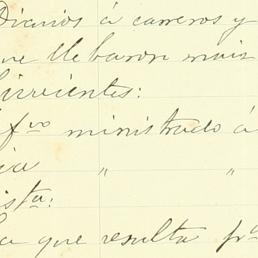 Diarios á carreros y
que llebaron mais
birvientes:
fvo ministrado á
ia " "
ista:
La que resulta pr